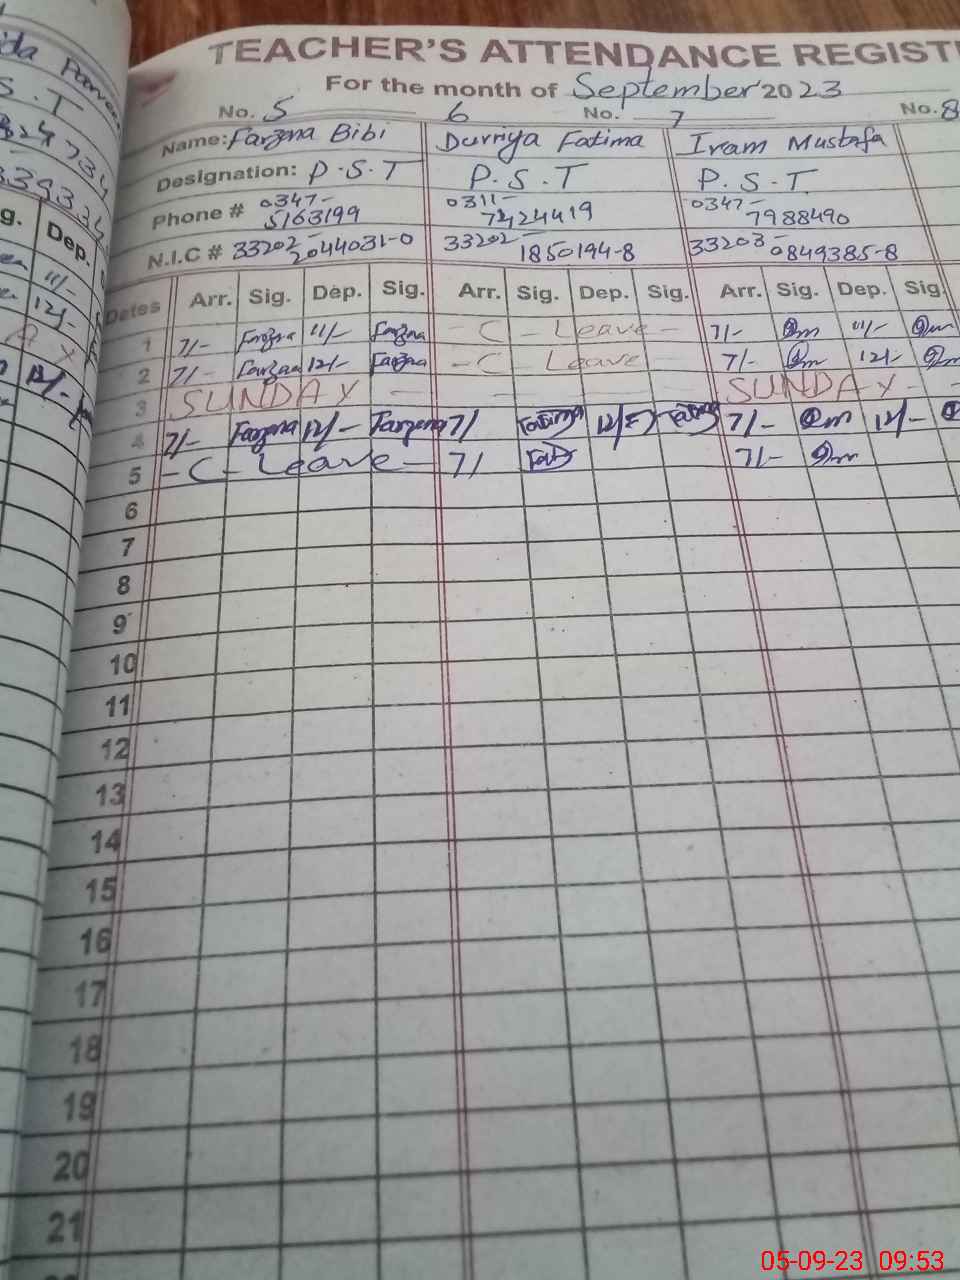 TEACHER'S ATTENDANCE REGIST
For the month of September 2023
No. 5 6 No. 7 No. 8
Name: Farzana Bibi Durriya Fatima Iram Mustafa
Designation: P.S.T P.S.T P.S.T
Phone # 0347-5163199 0311-7424419 0347-7988490
N.I.C # 33202-2044031-0 33202-1850194-8 33203-0849385-8
Dates Arr. Sig. Dep. Sig. Arr. Sig. Dep. Sig. Arr. Sig. Dep. Sig.
1 7/- Farzna 11/- Farzna - C - Leave - 7/- 11/-
2 7/- Farzna 12/- Farzna - C - Leave 7/- 12/-
3 SUNDAY - - - - - SUNDAY - -
4 7/- Farzena 12/- Farzena 7/ Fatima 12/ Fatima 7/- 12/-
5 - C - Leave - 7/ 7/-
6
7
8
9
10
11
12
13
14
15
16
17
18
19
20
21
S.T
g. Dep.
11/-
12/-
12/-
05-09-23 09:53